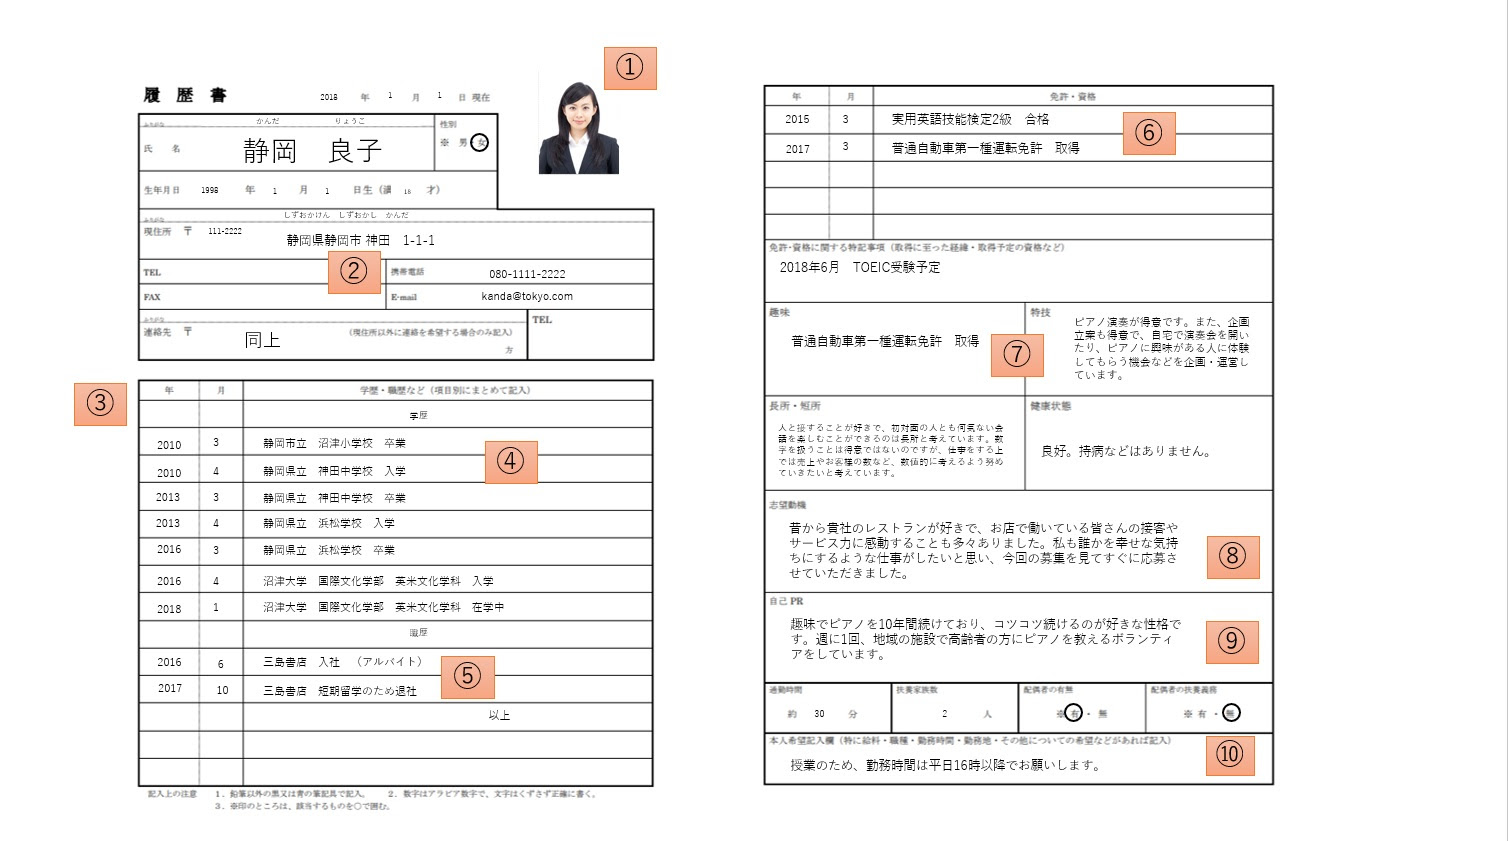 ①
履歴書　2018 年 1 月 1 日 現在
ふりがな　かんだ　りょうこ
性別
氏　名　静岡　良子
※ 男・女
生年月日　1998 年 1 月 1 日生（満　才）
ふりがな　しずおかけん　しずおかし　かんだ
現住所　〒　111-2222
静岡県静岡市 神田　1-1-1
②
TEL　携帯電話　080-1111-2222
FAX　E-mail　kanda@tokyo.com
ふりがな
TEL
連絡先　〒　同上　（現住所以外に連絡を希望する場合のみ記入）
方
③
年　月　学歴・職歴など（項目別にまとめて記入）
学歴
2010　3　静岡市立　沼津小学校　卒業
④
2010　4　静岡県立　神田中学校　入学
2013　3　静岡県立　神田中学校　卒業
2013　4　静岡県立　浜松学校　入学
2016　3　静岡県立　浜松学校　卒業
2016　4　沼津大学　国際文化学部　英米文化学科　入学
2018　1　沼津大学　国際文化学部　英米文化学科　在学中
職歴
2016　6　三島書店　入社　（アルバイト）
⑤
2017　10　三島書店　短期留学のため退社
以上
記入上の注意　１．鉛筆以外の黒又は青の筆記具で記入。　２．数字はアラビア数字で、文字はくずさず正確に書く。
３．※印のところは、該当するものを○で囲む。
年　月　免許・資格
2015　3　実用英語技能検定2級　合格
⑥
2017　3　普通自動車第一種運転免許　取得
免許・資格に関する特記事項（取得に至った経緯・取得予定の資格など）
2018年6月　TOEIC受験予定
趣味
普通自動車第一種運転免許　取得
⑦
特技
ピアノ演奏が得意です。また、企画
立案も得意で、自宅で演奏会を開い
たり、ピアノに興味がある人に体験
してもらう機会などを企画・運営し
ています。
長所・短所
人と接することが好きで、初対面の人とも何気ない会
話を楽しむことができるのは長所と考えています。数
字を扱うことは得意ではないのですが、仕事をする上
では売上やお客様の数など、数値的に考えるよう努め
ていきたいと考えています。
健康状態
良好。持病などはありません。
志望動機
昔から貴社のレストランが好きで、お店で働いている皆さんの接客や
サービス力に感動することも多々ありました。私も誰かを幸せな気持
ちにするような仕事がしたいと思い、今回の募集を見てすぐに応募さ
せていただきました。
⑧
自己 PR
趣味でピアノを10年間続けており、コツコツ続けるのが好きな性格で
す。週に1回、地域の施設で高齢者の方にピアノを教えるボランティ
アをしています。
⑨
通勤時間　扶養家族数　配偶者の有無　配偶者の扶養義務
約　30　分　2　人　※ 有・無　※ 有・無
本人希望記入欄（特に給料・職種・勤務時間・勤務地・その他についての希望などがあれば記入）
⑩
授業のため、勤務時間は平日16時以降でお願いします。